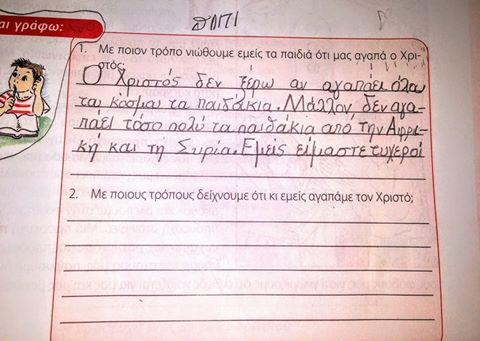 αι γράφω:
1. Με ποιον τρόπο νιώθουμε εμείς τα παιδιά ότι μας αγαπά ο Χρι-
στός;
Ο Χριστός δεν ξέρω αν αγαπάει όλα
του κόσμου τα παιδάκια. Μάλλον δεν αγα-
πάει τόσο πολύ τα παιδάκια από την Αφρι-
κή και τη Συρία. Εμείς είμαστε τυχεροί
2. Με ποιους τρόπους δείχνουμε ότι κι εμείς αγαπάμε τον Χριστό;